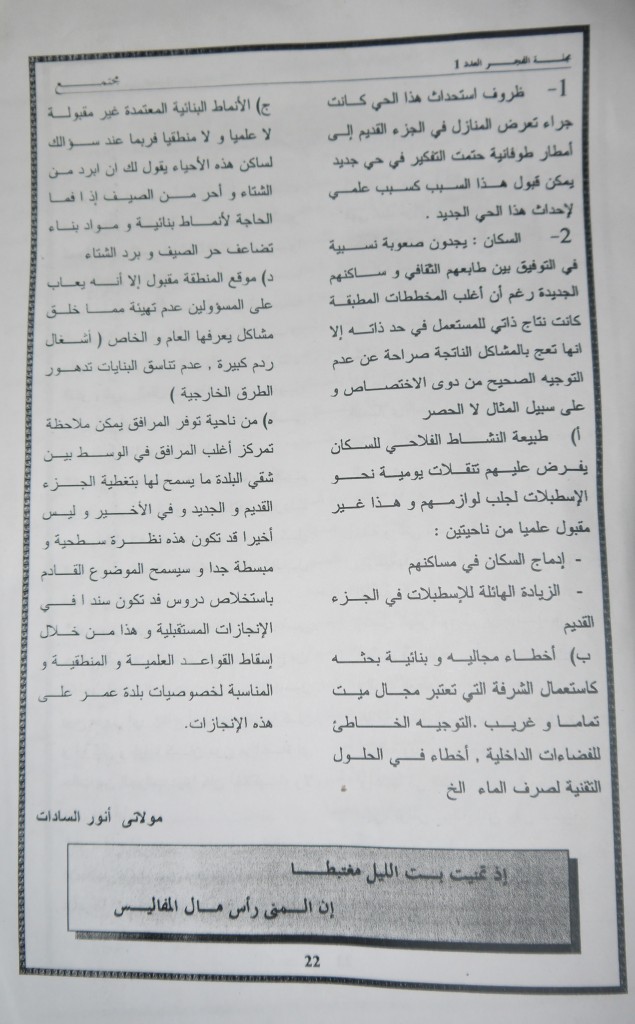 مجلة الفجر العدد 1
مجتمع
1- ظروف استحداث هذا الحي كانت
جراء تعرض المنازل في الجزء القديم إلى
أمطار طوفانية حتمت التفكير في حي جديد
يمكن قبول هذا السبب كسبب علمي
لإحداث هذا الحي الجديد .
2- السكان : يجدون صعوبة نسبية
في التوفيق بين طابعهم الثقافي و ساكنهم
الجديدة رغم أن أغلب المخططات المطبقة
كانت نتاج ذاتي للمستعمل في حد ذاته إلا
انها تعج بالمشاكل الناتجة صراحة عن عدم
التوجيه الصحيح من دوى الاختصاص و
على سبيل المثال لا الحصر
أ) طبيعة النشاط الفلاحي للسكان
يفرض عليهم تتقلات يومية نحو
الإسطبلات لجلب لوازمهم و هذا غير
مقبول علميا من ناحيتين :
- إدماج السكان في مساكنهم
- الزيادة الهائلة للإسطبلات في الجزء
القديم
ب) أخطاء مجاليه و بنائية بحثه
كاستعمال الشرفة التي تعتبر مجال ميت
تماما و غريب .التوجيه الخاطئ
للفضاءات الداخلية , أخطاء في الحلول
التقنية لصرف الماء الخ
ج) الأنماط البنائية المعتمدة غير مقبولة
لا علميا و لا منطقيا فربما عند سؤالك
لساكن هذه الأحياء يقول لك ان ابرد من
الشتاء و أحر من الصيف إذا فما
الحاجة لأنماط بنائية و مواد بناء
تضاعف حر الصيف و برد الشتاء
د) موقع المنطقة مقبول إلا أنه يعاب
على المسؤولين عدم تهيئة مما خلق
مشاكل يعرفها العام و الخاص ( أشغال
ردم كبيرة , عدم تناسق البنايات تدهور
الطرق الخارجية )
ه) من ناحية توفر المرافق يمكن ملاحظة
تمركز أغلب المرافق في الوسط بين
شقي البلدة ما يسمح لها بتغطية الجزء
القديم و الجديد و في الأخير و ليس
أخيرا قد تكون هذه نظرة سطحية و
مبسطة جدا و سيسمح الموضوع القادم
باستخلاص دروس قد تكون سندا في
الإنجازات المستقبلية و هذا من خلال
إسقاط القواعد العلمية و المنطقية و
المناسبة لخصوصيات بلدة عمر على
هذه الإنجازات.
مولاتى أنور السادات
إذ تمنيت بت الليل مغتبطا
إن المنى رأس مال المفاليس
22